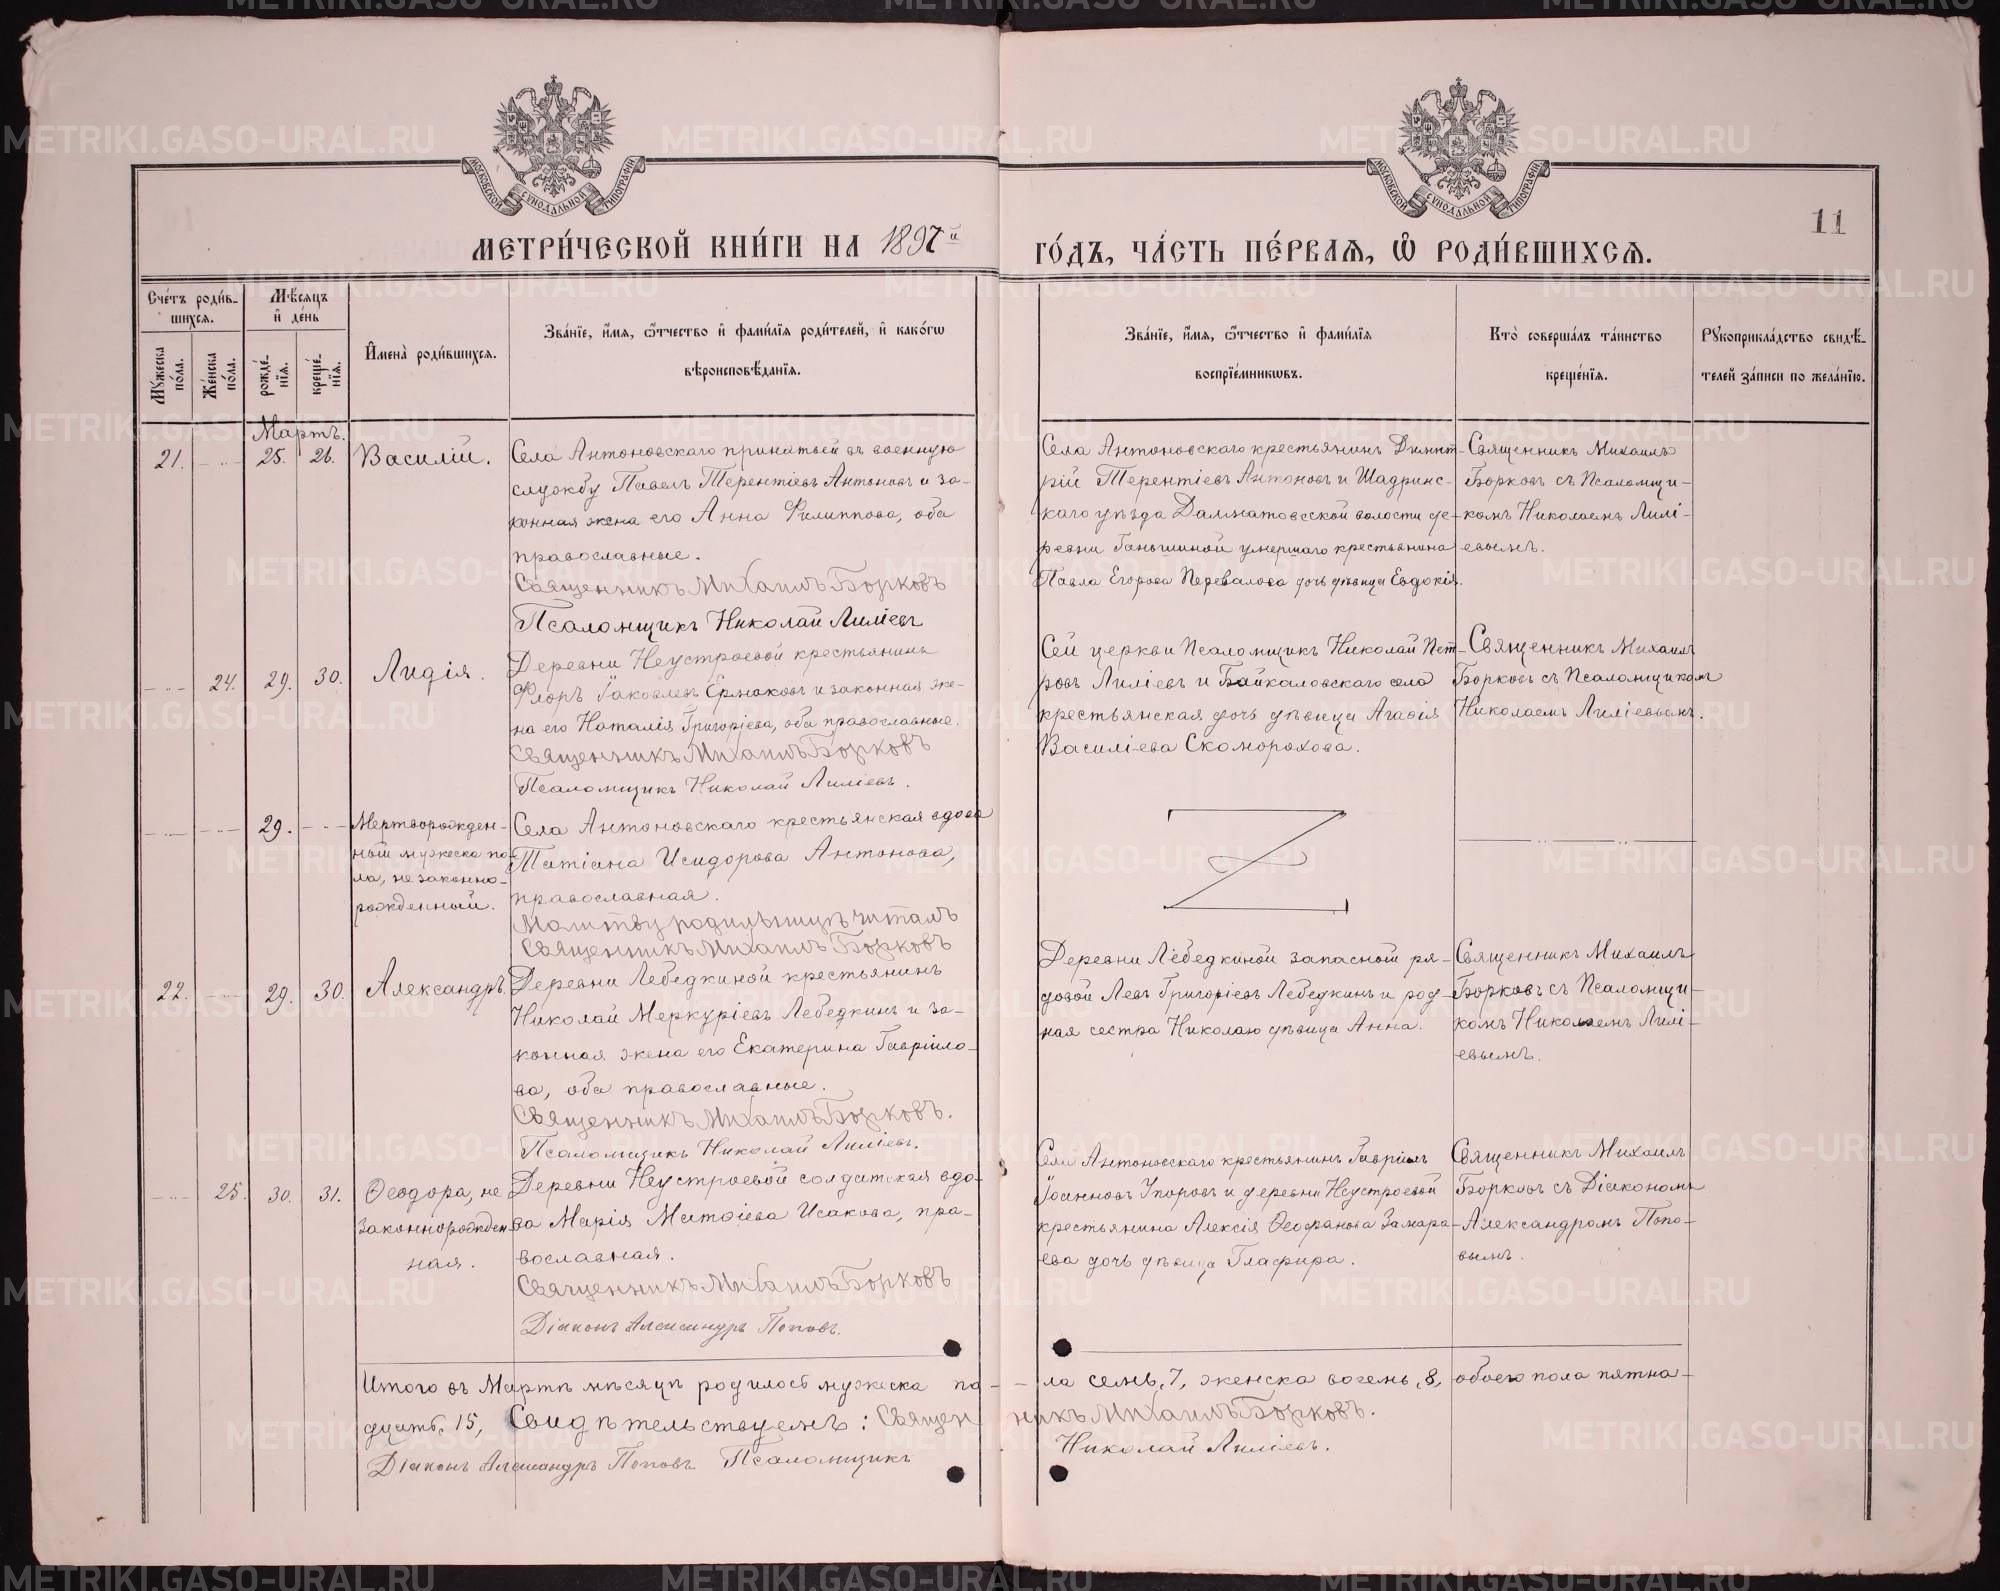 МОСКОВСКОЙ СУНОДАЛЬНОЙ ТИПОГРАФІИ
МОСКОВСКОЙ СУНОДАЛЬНОЙ ТИПОГРАФІИ
11
МЕТРИ́ЧЕСКОЙ КНИ́ГИ НА 1897й ГО́ДЪ, ЧА́СТЬ ПЕ́РВАѦ, Ѡ РОДИ́ВШИХСѦ.
Сче́тъ роди́в-
шихсѧ.
Мꙋжеска по́ла.
Же́нска по́ла.
Мѣ́сѧцъ
и҆ де́нь
рожде́-нїѧ.
креще́-нїѧ.
И҆мена̀ роди́вшихсѧ.
Зва́нїе, и҆́мѧ, ѻ҆́тчество и҆ фами́лїѧ роди́телей, и҆ како́гѡ
вѣроисповѣ́данїѧ.
Зва́нїе, и҆́мѧ, ѻ҆́тчество и҆ фами́лїѧ
воспрїе́мникѡвъ.
Кто̀ соверша́лъ та́инство
креще́нїѧ.
Рꙋкоприкла́дство свидѣ́-
телей за́писи по жела́нїю.
Мартъ.
21. 25. 26. Василій.
Села Антоновскаго принятый въ военную
службу Павелъ Терентіевъ Антоновъ и за-
конная жена его Анна Филиппова, оба
православные.
Священникъ Михаилъ Борковъ
Псаломщикъ Николай Лиліевъ
Села Антоновскаго крестьянинъ Димит-
рій Терентіевъ Антоновъ и Шадринс-
каго уѣзда Далматовской волости де-
ревни Ганьшиной умершаго крестьянина
Павла Егорова Перевалова дочь дѣвица Евдокія.
Священникъ Михаилъ
Борковъ съ Псаломщи-
комъ Николаемъ Лилі-
евымъ.
24. 29. 30. Лидія.
Деревни Неустроевой крестьянинъ
Флоръ Іаковлевъ Ермаковъ и законная же-
на его Наталія Григоріева, оба православные.
Священникъ Михаилъ Борковъ
Псаломщикъ Николай Лиліевъ.
Сей церкви Псаломщикъ Николай Пет-
ровъ Лиліевъ и Байкаловскаго села
крестьянская дочь дѣвица Агафія
Василіева Скоморохова.
Священникъ Михаилъ
Борковъ съ Псаломщикомъ
Николаемъ Лиліевымъ.
29. Мертворожден-
ный мужеска по-
ла, незаконно-
рожденный.
Села Антоновскаго крестьянская вдова
Татіана Исидорова Антонова,
православная.
Молитву родильницѣ читалъ
Священникъ Михаилъ Борковъ
22. 29. 30. Александръ.
Деревни Лебедкиной крестьянинъ
Николай Меркуріевъ Лебедкинъ и за-
конная жена его Екатерина Гавріило-
ва, оба православные.
Священникъ Михаилъ Борковъ.
Псаломщикъ Николай Лиліевъ.
Деревни Лебедкиной запасной ря-
довой Левъ Григоріевъ Лебедкинъ и род-
ная сестра Николаю дѣвица Анна.
Священникъ Михаилъ
Борковъ съ Псаломщи-
комъ Николаемъ Лилі-
евымъ.
25. 30. 31. Ѳеодора, не
законнорожден
ная.
Деревни Неустроевой солдатская вдо-
ва Марія Матѳіева Исакова, пра-
вославная.
Священникъ Михаилъ Борковъ
Діаконъ Александръ Поповъ.
Села Антоновскаго крестьянинъ Гавріилъ
Іоанновъ Упоровъ и деревни Неустроевой
крестьянина Алексія Ѳеофанова Замара-
ева дочь дѣвица Глафира.
Священникъ Михаилъ
Борковъ съ Діакономъ
Александромъ Попо-
вымъ.
Итого въ Мартѣ мѣсяцѣ родилось мужеска по- ла семь, 7, женска восемь, 8, обоего пола пятна-
дцать, 15, Свидѣтельствуемъ: Священникъ Михаилъ Борковъ.
Діаконъ Александръ Поповъ Псаломщикъ Николай Лиліевъ.
METRIKI.GASO-URAL.RU